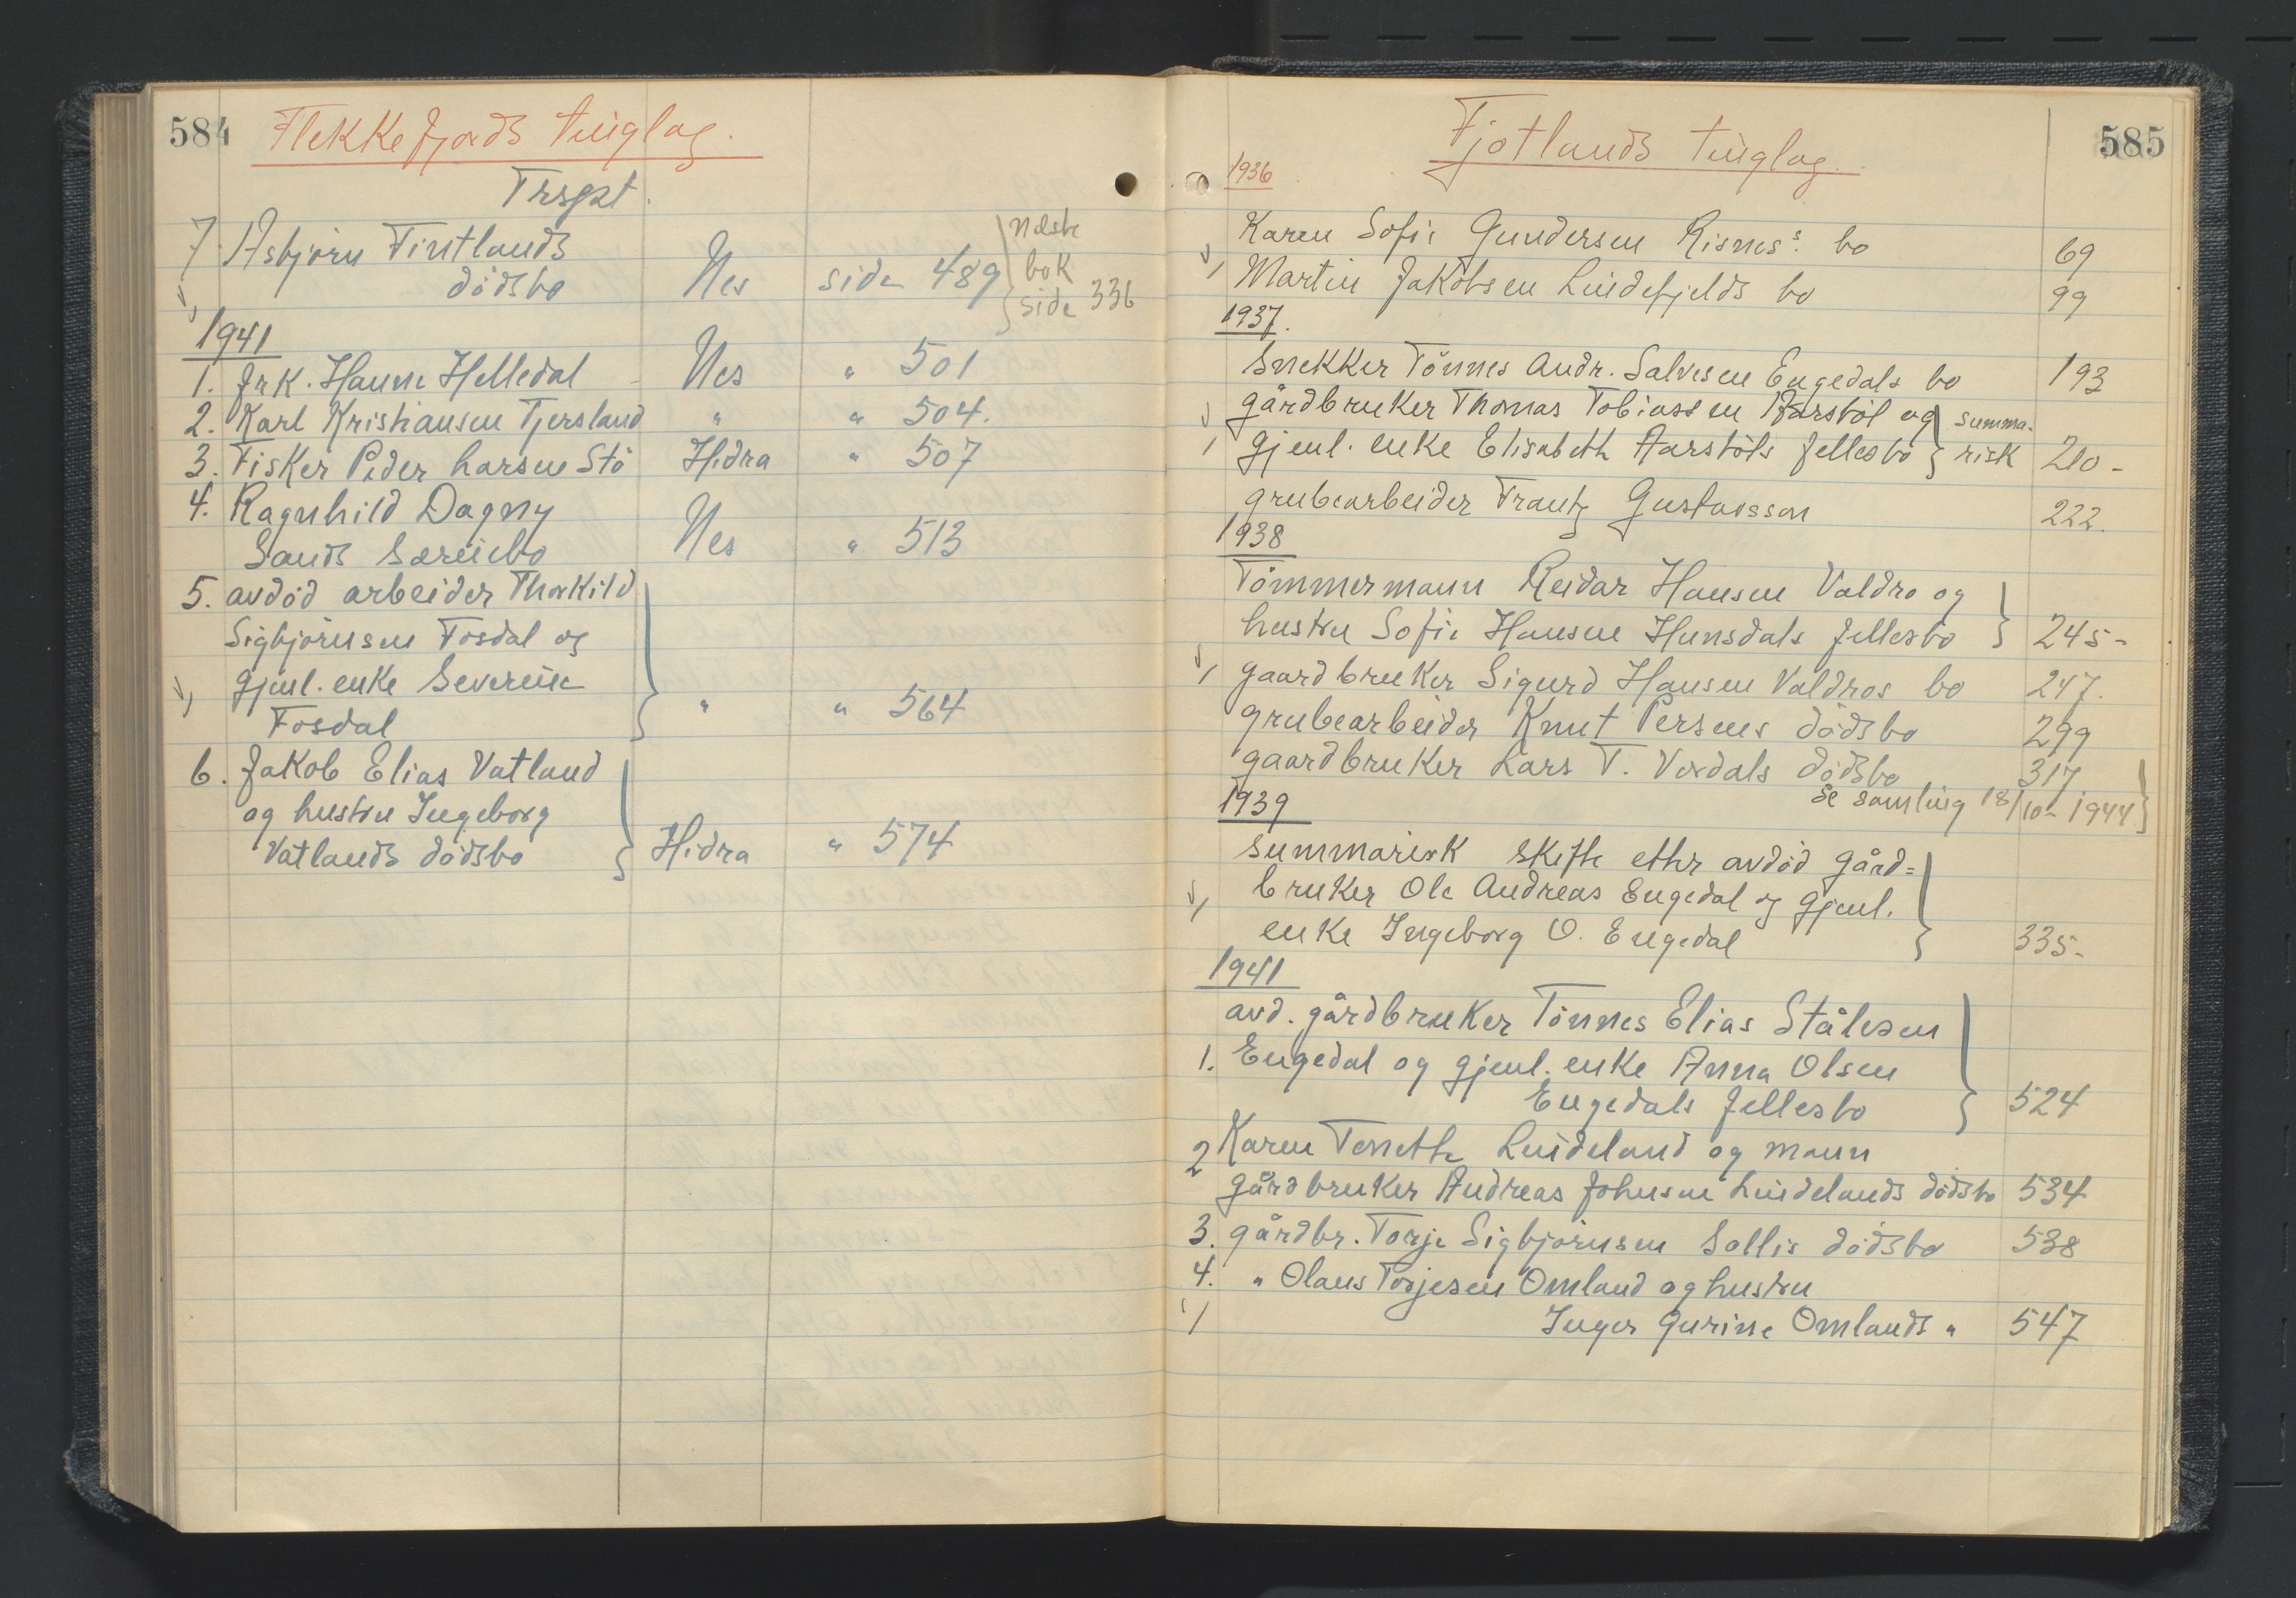 584
Flekkefjords tinglag.
Trspt.
7. Asbjørn Fintlands
dødsbo Nes side 489 } Neste
bok
side 336
1941
1. frk. Hanne Helledal - Nes " 501
2. Karl Kristiansen Tjersland " " 504.
3. Fisker Peder Larsen Stö Hidra " 507
4. Ragnhild Dagny
Sands særeiebo Nes " 513
5. avdød arbeider Thorkild
Sigbjørnsen Fosdal og
gjenl. enke Severine
Fosdal " " 564
6. Jakob Elias Vatland
og hustru Ingeborg
Vatlands dødsbo Hidra " 574
585
Fjotlands tinglag.
1936
Karen Sofie Gundersen Risnes's bo 69
Martin Jakobsen Lindefjelds bo 99
1937.
Snekker Tönnes Andr. Salvesen Engedals bo 193
gårdbruker Thomas Tobiassen Aarstöl og } summa-
gjenl. enke Elisabeth Aarstöls fellesbo } risk 210-
grubearbeider Frantz Gustavsson 222.
1938
Tömmermann Reidar Hansen Valdra og
hustru Sofie Hansen Hunsdals fellesbo } 245-
gaardbruker Sigurd Hansen Valdras bo 247.
grubearbeider Knut Persens dødsbo 299
gaardbruker Lars T. Verdals dødsbo 317
se samling 18/10-1944
1939
summarisk skifte etter avdød gård=
bruker Ole Andreas Engedal og gjenl.
enke Ingeborg O. Engedal } 335-
1941
avd. gårdbruker Tönnes Elias Stålesen
1. Engedal og gjenl. enke Anna Olsen
Engedals fellesbo } 524
2 Karen Tenette Lindeland og mann
gårdbruker Andreas Johnsen Lindelands dødsbo 534
3. gårdbr. Torje Sigbjørnsen Sollis dødsbo 538
4. " Olaus Torjesen Omland og hustru
Inger Gurine Omlands " 547